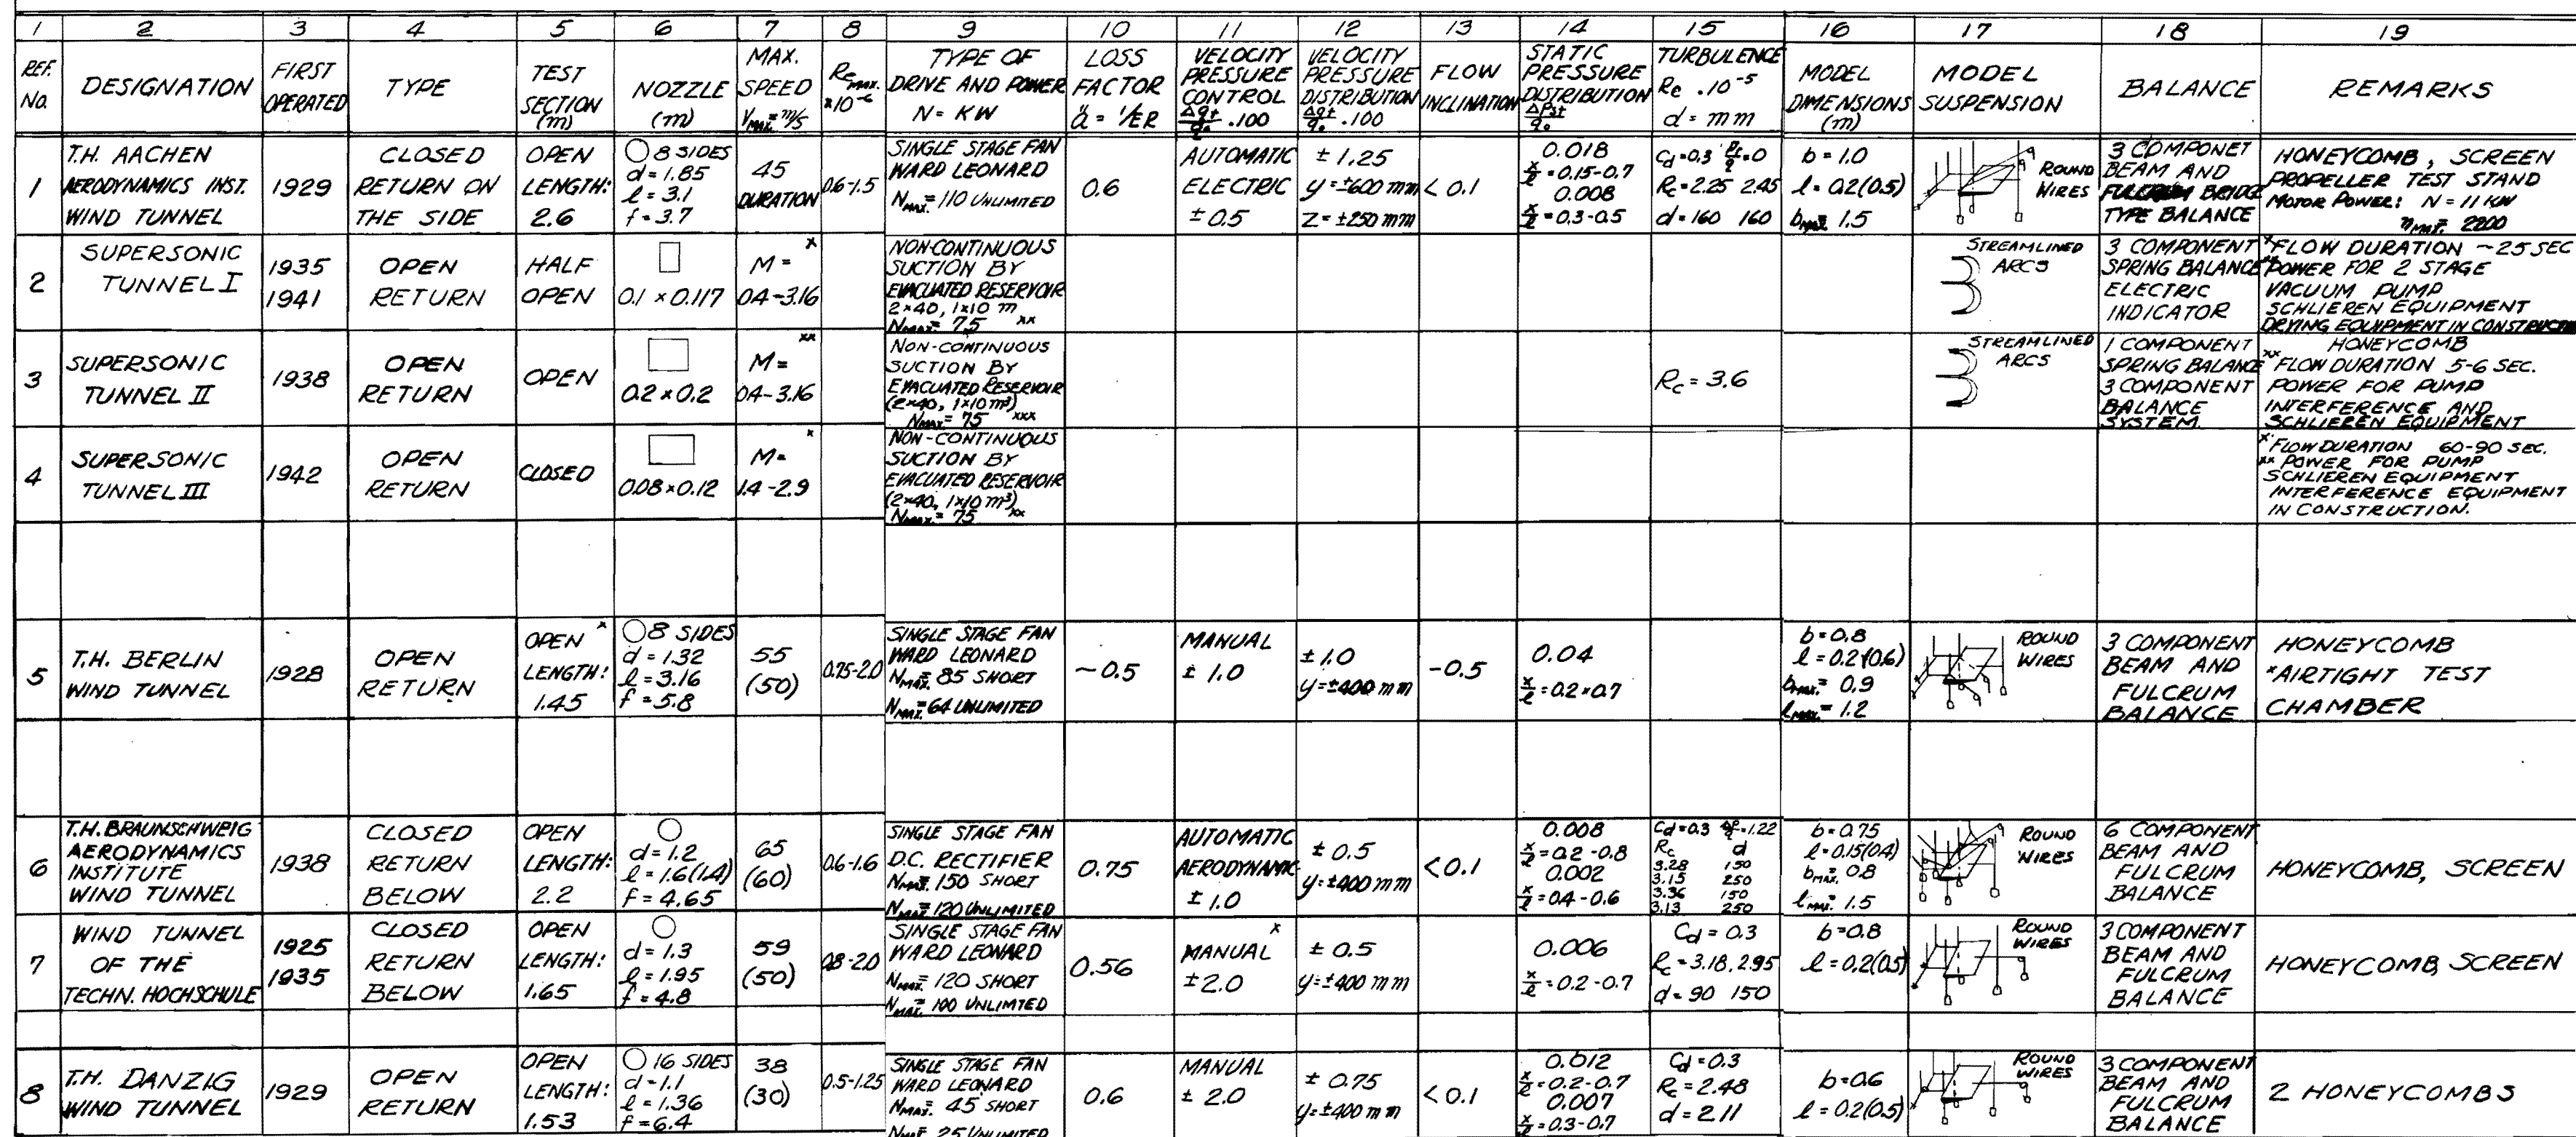 1 2 3 4 5 6 7 8 9 10 11 12 13 14 15 16 17 18 19
REF. No.
DESIGNATION
FIRST
OPERATED
TYPE
TEST
SECTION
(m)
NOZZLE
(m)
MAX.
SPEED
VMAX.= m/s
Re MAX.
×10⁻⁶
TYPE OF
DRIVE AND POWER
N = KW
LOSS
FACTOR
ü = 1/ER
VELOCITY
PRESSURE
CONTROL
.100
VELOCITY
PRESSURE
DISTRIBUTION
.100
FLOW
INCLINATION
STATIC
PRESSURE
DISTRIBUTION
TURBULENCE
Re . 10⁻⁵
d = mm
MODEL
DIMENSIONS
(m)
MODEL
SUSPENSION
BALANCE
REMARKS
1
T.H. AACHEN
AERODYNAMICS INST.
WIND TUNNEL
1929
CLOSED
RETURN ON
THE SIDE
OPEN
LENGTH:
2.6
8 SIDES
d = 1.85
l = 3.1
f = 3.7
45
DURATION
0.6-1.5
SINGLE STAGE FAN
WARD LEONARD
NMAX.= 110 UNLIMITED
0.6
AUTOMATIC
ELECTRIC
± 0.5
± 1.25
y = ±600 mm
z = ±250 mm
< 0.1
0.018
x/l = 0.15-0.7
0.008
x/l = 0.3-0.5
Cd = 0.3
Rc = 2.25 2.45
d = 160 160
b = 1.0
l = 0.2(0.5)
bMAX.= 1.5
ROUND
WIRES
3 COMPONET
BEAM AND
FULCRUM BRIDGE
TYPE BALANCE
HONEYCOMB, SCREEN
PROPELLER TEST STAND
MOTOR POWER: N = 11 KW
nMAX.= 2200
2
SUPERSONIC
TUNNEL I
1935
1941
OPEN
RETURN
HALF
OPEN
0.1 × 0.117
M = x
0.4-3.16
NON-CONTINUOUS
SUCTION BY
EVACUATED RESERVOIR
2×40, 1×10 m
NMAX.= 75 xx
STREAMLINED
ARCS
3 COMPONENT
SPRING BALANCE
ELECTRIC
INDICATOR
x FLOW DURATION ~25 SEC
xx POWER FOR 2 STAGE
VACUUM PUMP
SCHLIEREN EQUIPMENT
DRYING EQUIPMENT IN CONSTRUCTION
3
SUPERSONIC
TUNNEL II
1938
OPEN
RETURN
OPEN
0.2 × 0.2
M = xx
0.4-3.16
NON-CONTINUOUS
SUCTION BY
EVACUATED RESERVOIR
(2×40, 1×10 m³)
NMAX.= 75 xxx
Rc = 3.6
STREAMLINED
ARCS
1 COMPONENT
SPRING BALANCE
3 COMPONENT
BALANCE
SYSTEM.
HONEYCOMB
xx FLOW DURATION 5-6 SEC.
POWER FOR PUMP
INTERFERENCE AND
SCHLIEREN EQUIPMENT
4
SUPERSONIC
TUNNEL III
1942
OPEN
RETURN
CLOSED
0.08×0.12
M = x
1.4-2.9
NON-CONTINUOUS
SUCTION BY
EVACUATED RESERVOIR
(2×40, 1×10 m³)
NMAX.= 75 xx
x FLOW DURATION 60-90 SEC.
xx POWER FOR PUMP
SCHLIEREN EQUIPMENT
INTERFERENCE EQUIPMENT
IN CONSTRUCTION.
5
T.H. BERLIN
WIND TUNNEL
1928
OPEN
RETURN
OPEN x
LENGTH:
1.45
8 SIDES
d = 1.32
l = 3.16
f = 5.8
55
(50)
0.75-2.0
SINGLE STAGE FAN
WARD LEONARD
NMAX.= 85 SHORT
NMAX.= 64 UNLIMITED
~0.5
MANUAL
± 1.0
± 1.0
y = ±400 mm
-0.5
0.04
x/l = 0.2×0.7
b = 0.8
l = 0.2(0.6)
bMAX.= 0.9
lMAX.= 1.2
ROUND
WIRES
3 COMPONENT
BEAM AND
FULCRUM
BALANCE
HONEYCOMB
x AIRTIGHT TEST
CHAMBER
6
T.H. BRAUNSCHWEIG
AERODYNAMICS
INSTITUTE
WIND TUNNEL
1938
CLOSED
RETURN
BELOW
OPEN
LENGTH:
2.2
d = 1.2
l = 1.6(1.4)
f = 4.65
65
(60)
0.6-1.6
SINGLE STAGE FAN
D.C. RECTIFIER
NMAX.= 150 SHORT
NMAX.= 120 UNLIMITED
0.75
AUTOMATIC
AERODYNAMIC
± 1.0
± 0.5
y = ±400 mm
<0.1
0.008
x/l = 0.2-0.8
0.002
x/l = 0.4-0.6
Cd = 0.3 = 1.22
Rc d
3.28 150
3.15 250
3.36 150
3.13 250
b = 0.75
l = 0.15(0.4)
bMAX.= 0.8
lMAX.= 1.5
ROUND
WIRES
6 COMPONENT
BEAM AND
FULCRUM
BALANCE
HONEYCOMB, SCREEN
7
WIND TUNNEL
OF THE
TECHN. HOCHSCHULE
1925
1935
CLOSED
RETURN
BELOW
OPEN
LENGTH:
1.65
d = 1.3
l = 1.95
f = 4.8
59
(50)
0.8-2.0
SINGLE STAGE FAN
WARD LEONARD
NMAX.= 120 SHORT
NMAX.= 100 UNLIMITED
0.56
MANUAL x
± 2.0
± 0.5
y = ±400 mm
0.006
x/l = 0.2-0.7
Cd = 0.3
Rc = 3.18, 2.95
d = 90 150
b = 0.8
l = 0.2(0.5)
ROUND
WIRES
3 COMPONENT
BEAM AND
FULCRUM
BALANCE
HONEYCOMB, SCREEN
8
T.H. DANZIG
WIND TUNNEL
1929
OPEN
RETURN
OPEN
LENGTH:
1.53
16 SIDES
d = 1.1
l = 1.36
f = 6.4
38
(30)
0.5-1.25
SINGLE STAGE FAN
WARD LEONARD
NMAX.= 45 SHORT
NMAX.= 25 UNLIMITED
0.6
MANUAL
± 2.0
± 0.75
y = ±400 mm
< 0.1
0.012
x/l = 0.2-0.7
0.007
x/l = 0.3-0.7
Cd = 0.3
Rc = 2.48
d = 211
b = 0.6
l = 0.2(0.5)
ROUND
WIRES
3 COMPONENT
BEAM AND
FULCRUM
BALANCE
2 HONEYCOMBS